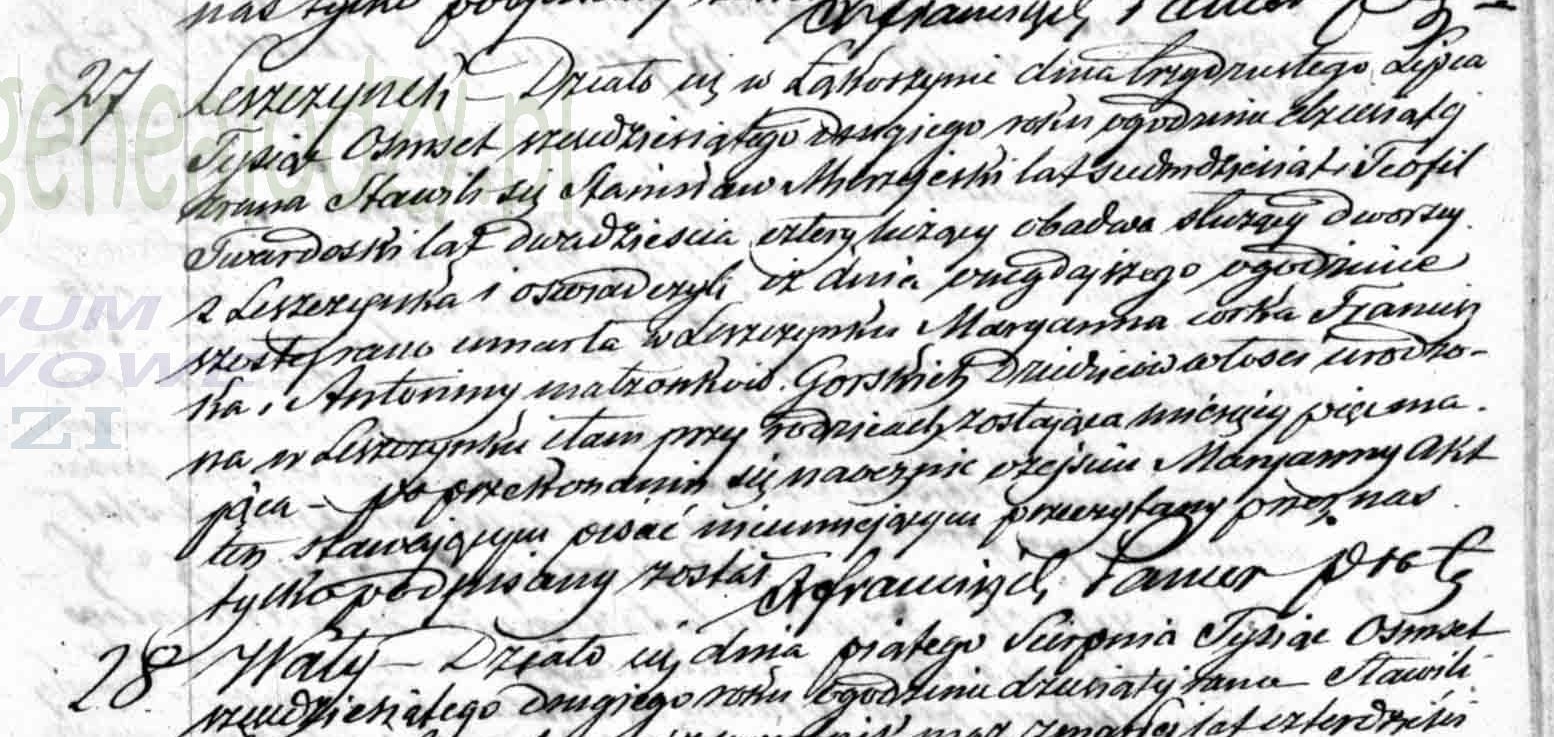 nas tylko podpisany
27 Leszczynek – Działo się w Łąkoszynie dnia trzydziestego Lipca
Tysiąc Osmset szesdziesiątego drugiego roku o godzinie dziewiątej
zrana Stawili się Stanisław lat siedmdziesiąt i Teofil
Twardoski lat dwadzieścia cztery liczący obadwa służący dworscy
z Leszczynka i oświadczyli iż dnia onegdajszego o godzinie
szostej rano umarła w Leszczynku Maryanna corka Francisz
ka i Antoniny małżonków Gorskich Dziedziców włości urodzo-
na w Leszczynku i tam przy rodzicach zostająca miesięcy pięć ma-
jąca – po przekonaniu się naocznie o zejściu Maryanny Akt
ten stawającym pisać nieumiejącym przeczytany przez nas
tylko podpisany został X Franciszek
28 Wały – Działo się dnia piątego Sierpnia Tysiąc Osmset
szesdziesiątego drugiego roku o godzinie dziewiątej rana Stawili
mąż zmarłej lat czterdzieści
genealodzy.pl
YUM
WOWE
ZI